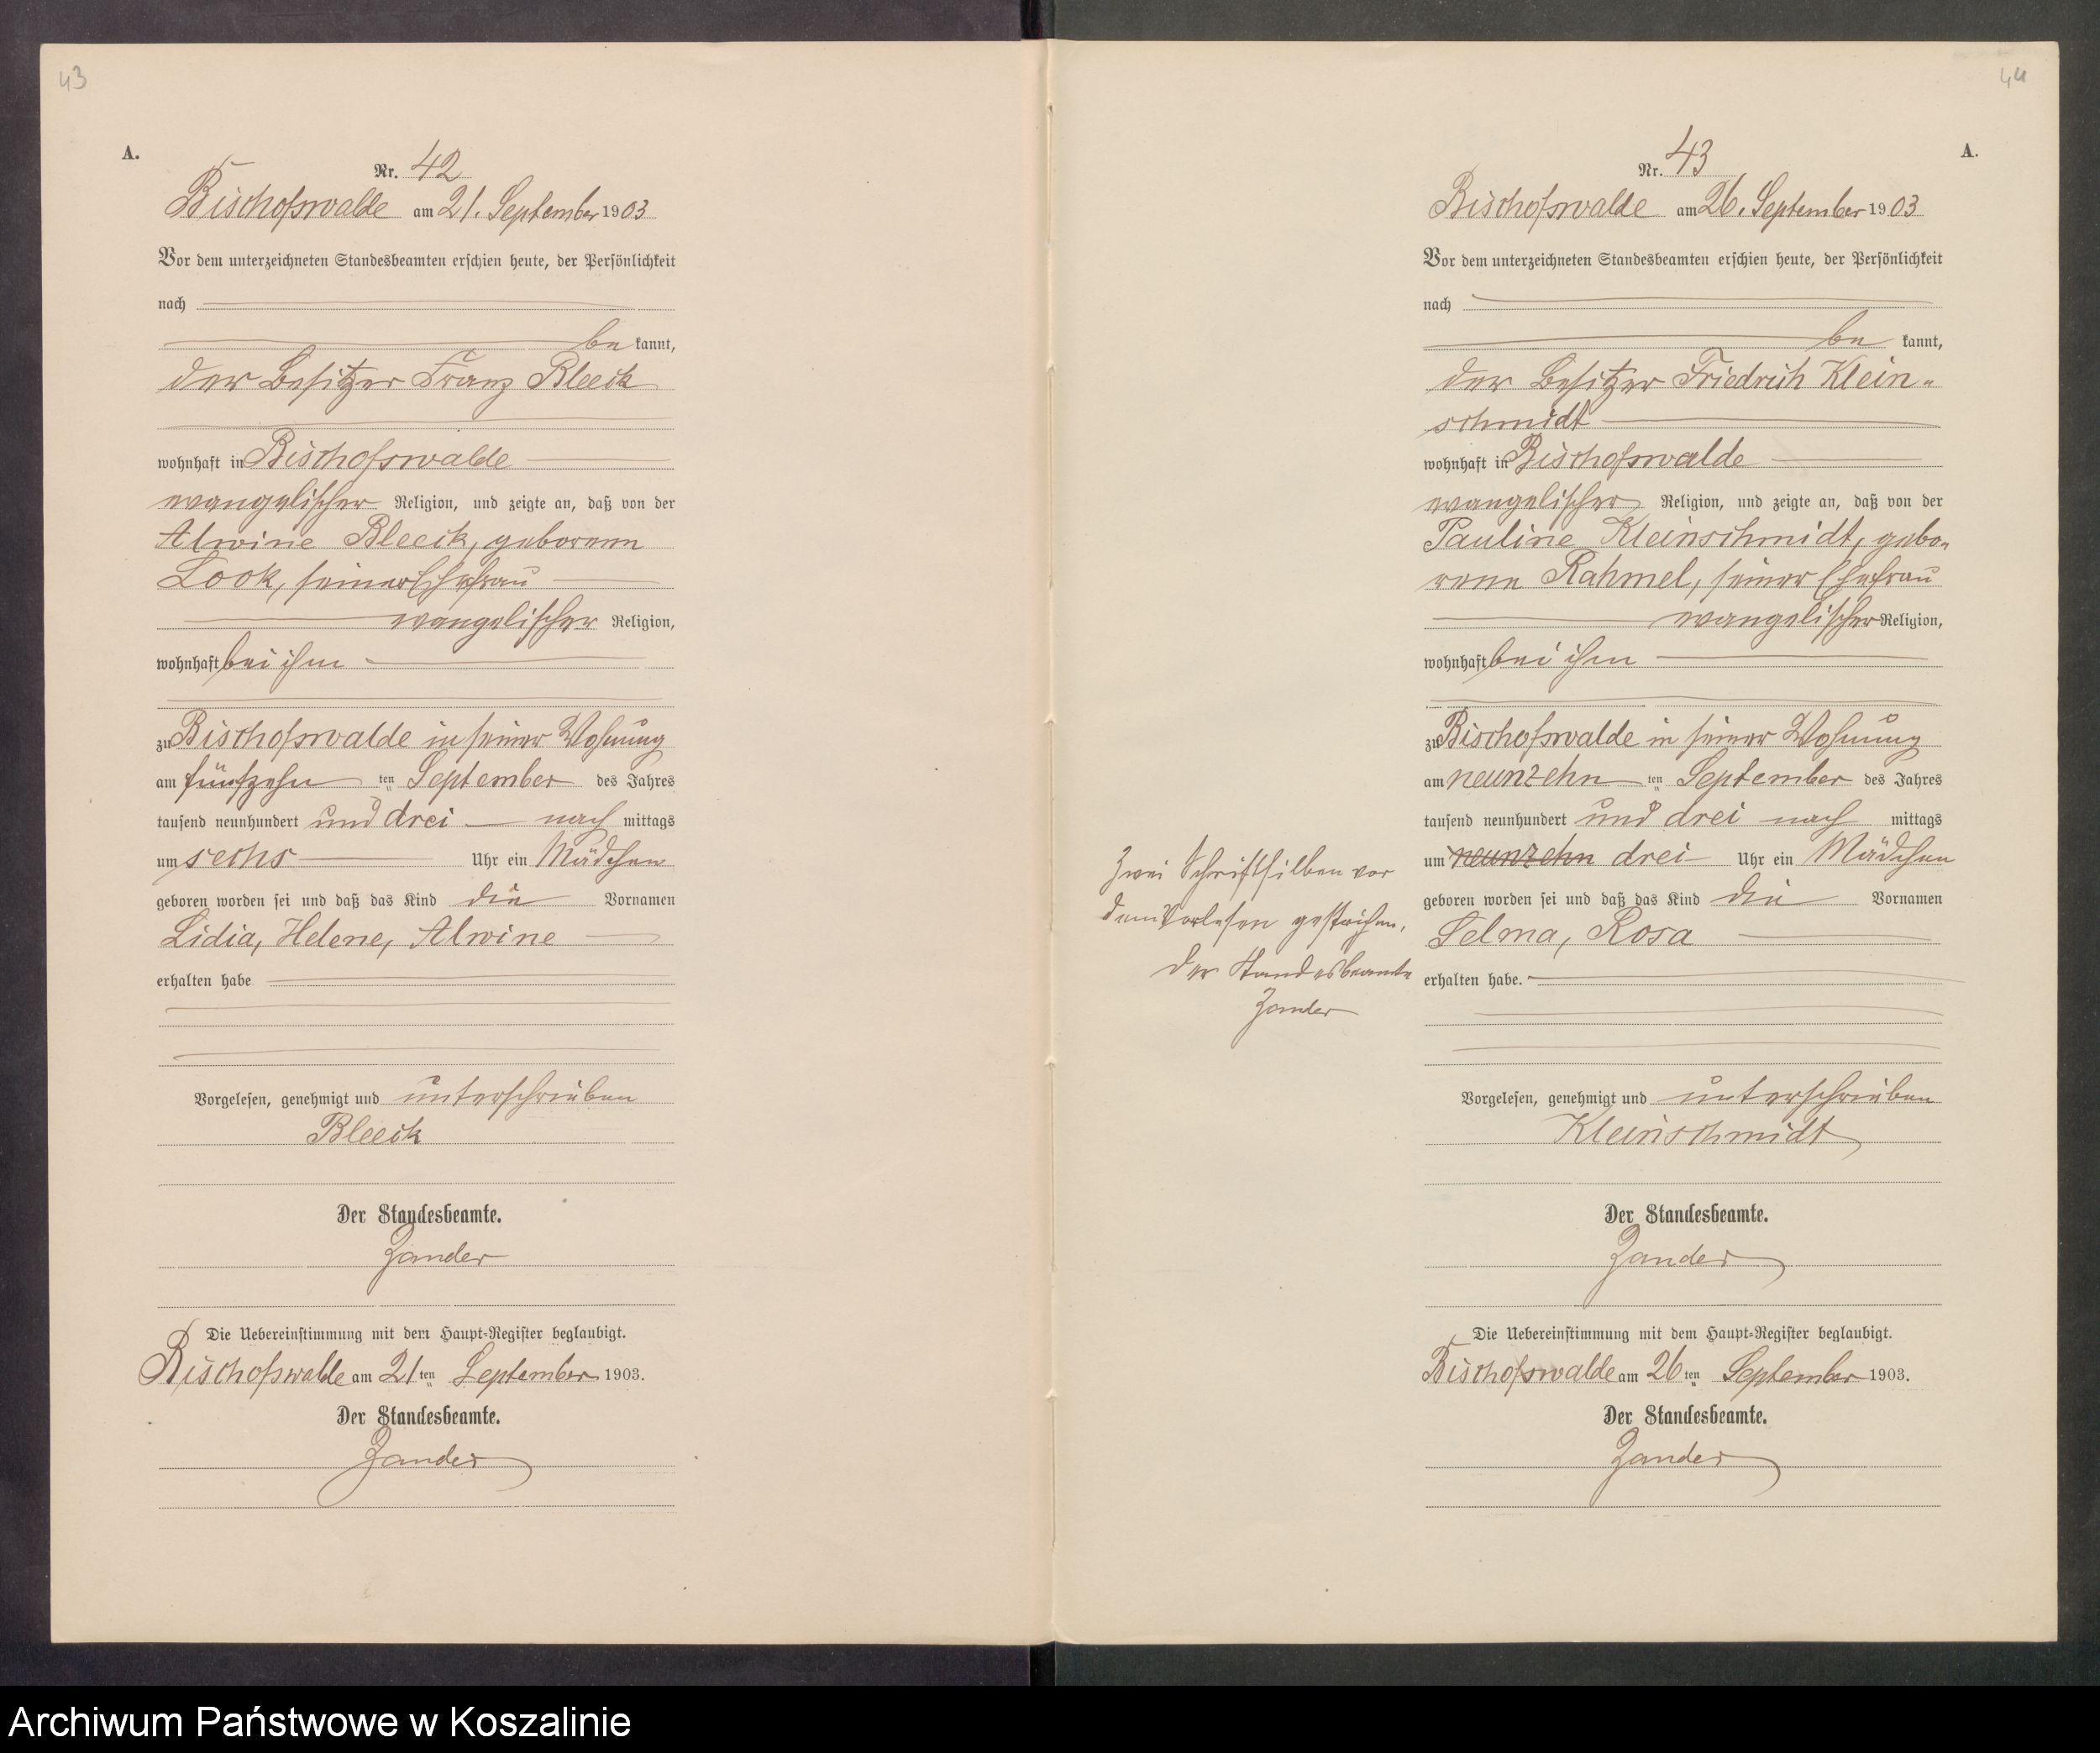 43
A.
Nr. 42
Bischofswalde am 21. September 1903
Vor dem unterzeichneten Standesbeamten erschien heute, der Persönlichkeit
nach
be kannt,
der Besitzer Franz Bleeck
wohnhaft in Bischofswalde
evangelischer Religion, und zeigte an, daß von der
Alwine Bleeck, geborenen
Look, seiner Ehefrau
evangelischer Religion,
wohnhaft bei ihm
zu Bischofswalde in seiner Wohnung
am fünfzehn ten September des Jahres
tausend neunhundert und drei nach mittags
um sechs Uhr ein Mädchen
geboren worden sei und daß das Kind die Vornamen
Lidia, Helene, Alwine
erhalten habe
Vorgelesen, genehmigt und unterschrieben
Bleeck
Der Standesbeamte.
Zander
Die Uebereinstimmung mit dem Haupt-Register beglaubigt.
Bischofswalde am 21 ten September 1903.
Der Standesbeamte.
Zander
44
A.
Nr. 43
Bischofswalde am 26. September 1903
Vor dem unterzeichneten Standesbeamten erschien heute, der Persönlichkeit
nach
be kannt,
der Besitzer Friedrich Klein-
schmidt
wohnhaft in Bischofswalde
evangelischer Religion, und zeigte an, daß von der
Pauline Kleinschmidt, gebo-
rene Rahmel, seiner Ehefrau
evangelischer Religion,
wohnhaft bei ihm
zu Bischofswalde in seiner Wohnung
am neunzehn ten September des Jahres
tausend neunhundert und drei nach mittags
um neunzehn drei Uhr ein Mädchen
geboren worden sei und daß das Kind die Vornamen
Selma, Rosa
erhalten habe.
Zwei Schriftsilben vor
dem Vorlesen gestrichen.
Der Standesbeamte
Zander
Vorgelesen, genehmigt und unterschrieben
Kleinschmidt
Der Standesbeamte.
Zander
Die Uebereinstimmung mit dem Haupt-Register beglaubigt.
Bischofswalde am 26 ten September 1903.
Der Standesbeamte.
Zander
Archiwum Państwowe w Koszalinie